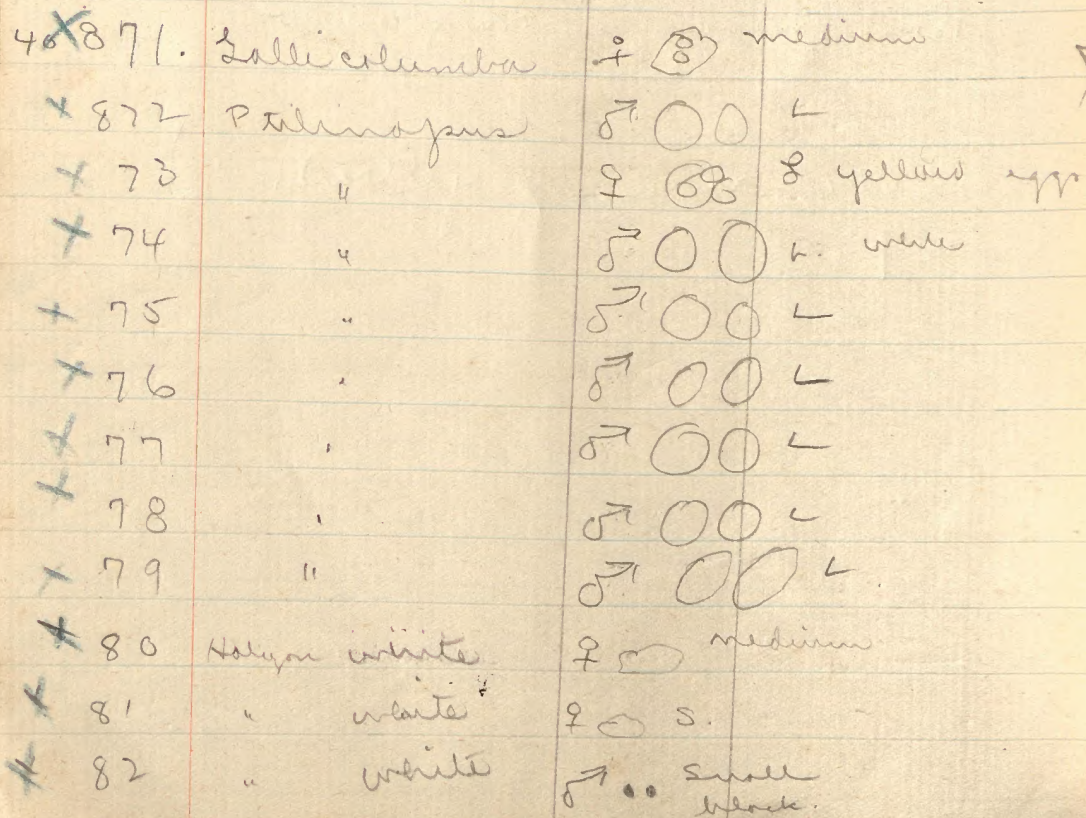 40 X 871. Gallicolumba ♀ medium
X 872 Ptilinopus ♂ L
X 73 " ♀ yellow eggs
X 74 " ♂ L. white
X 75 " ♂ L
X 76 " ♂ L
X 77 " ♂ L
X 78 " ♂ L
X 79 " ♂ L.
X 80 Halcyon white ♀ medium
X 81 " white ♀ S.
X 82 " white ♂ Small
black.